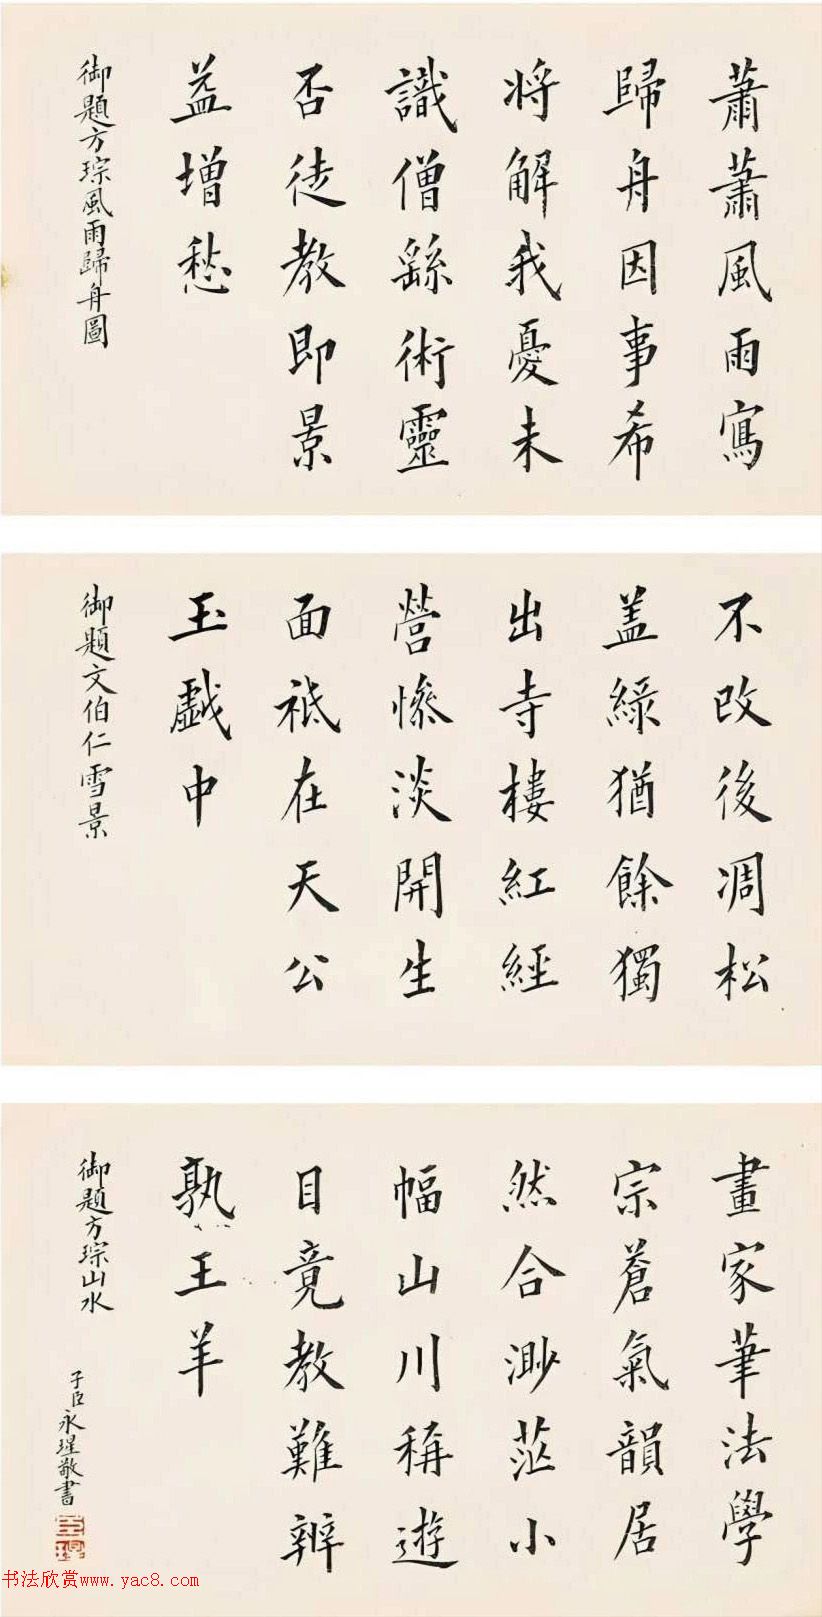 蕭蕭風雨寫
歸舟因事希
將解我憂未
識僧繇術靈
否徒教即景
益增愁
御題方琮風雨歸舟圖
不改後凋松
盖綠猶餘獨
出寺樓紅經
營慘淡開生
面祗在天公
玉戲中
御題文伯仁雪景
畫家筆法學
宗蒼氣韻居
然合渺茫小
幅山川稱遊
目竟教難辨
孰王羊
御題方琮山水
子臣永瑆敬書
书法欣赏www.yac8.com